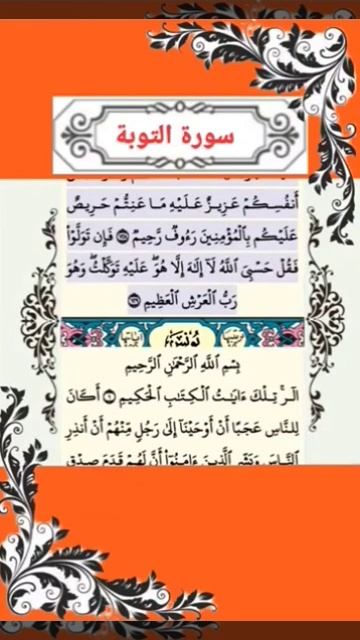 سورة التوبة
أَنفُسِكُمْ عَزِيزٌ عَلَيْهِ مَا عَنِتُّمْ حَرِيصٌ
عَلَيْكُم بِٱلْمُؤْمِنِينَ رَءُوفٌ رَّحِيمٌ ١٢٨ فَإِن تَوَلَّوْا۟
فَقُلْ حَسْبِىَ ٱللَّهُ لَآ إِلَٰهَ إِلَّا هُوَ عَلَيْهِ تَوَكَّلْتُ وَهُوَ
رَبُّ ٱلْعَرْشِ ٱلْعَظِيمِ ١٢٩
يُونُسَ
بِسْمِ ٱللَّهِ ٱلرَّحْمَٰنِ ٱلرَّحِيمِ
الٓر تِلْكَ ءَايَٰتُ ٱلْكِتَٰبِ ٱلْحَكِيمِ ١ أَكَانَ
لِلنَّاسِ عَجَبًا أَنْ أَوْحَيْنَآ إِلَىٰ رَجُلٍ مِّنْهُمْ أَنْ أَنذِرِ
ٱلنَّاسَ وَبَشِّرِ ٱلَّذِينَ ءَامَنُوٓا۟ أَنَّ لَهُمْ قَدَمَ صِدْقٍ